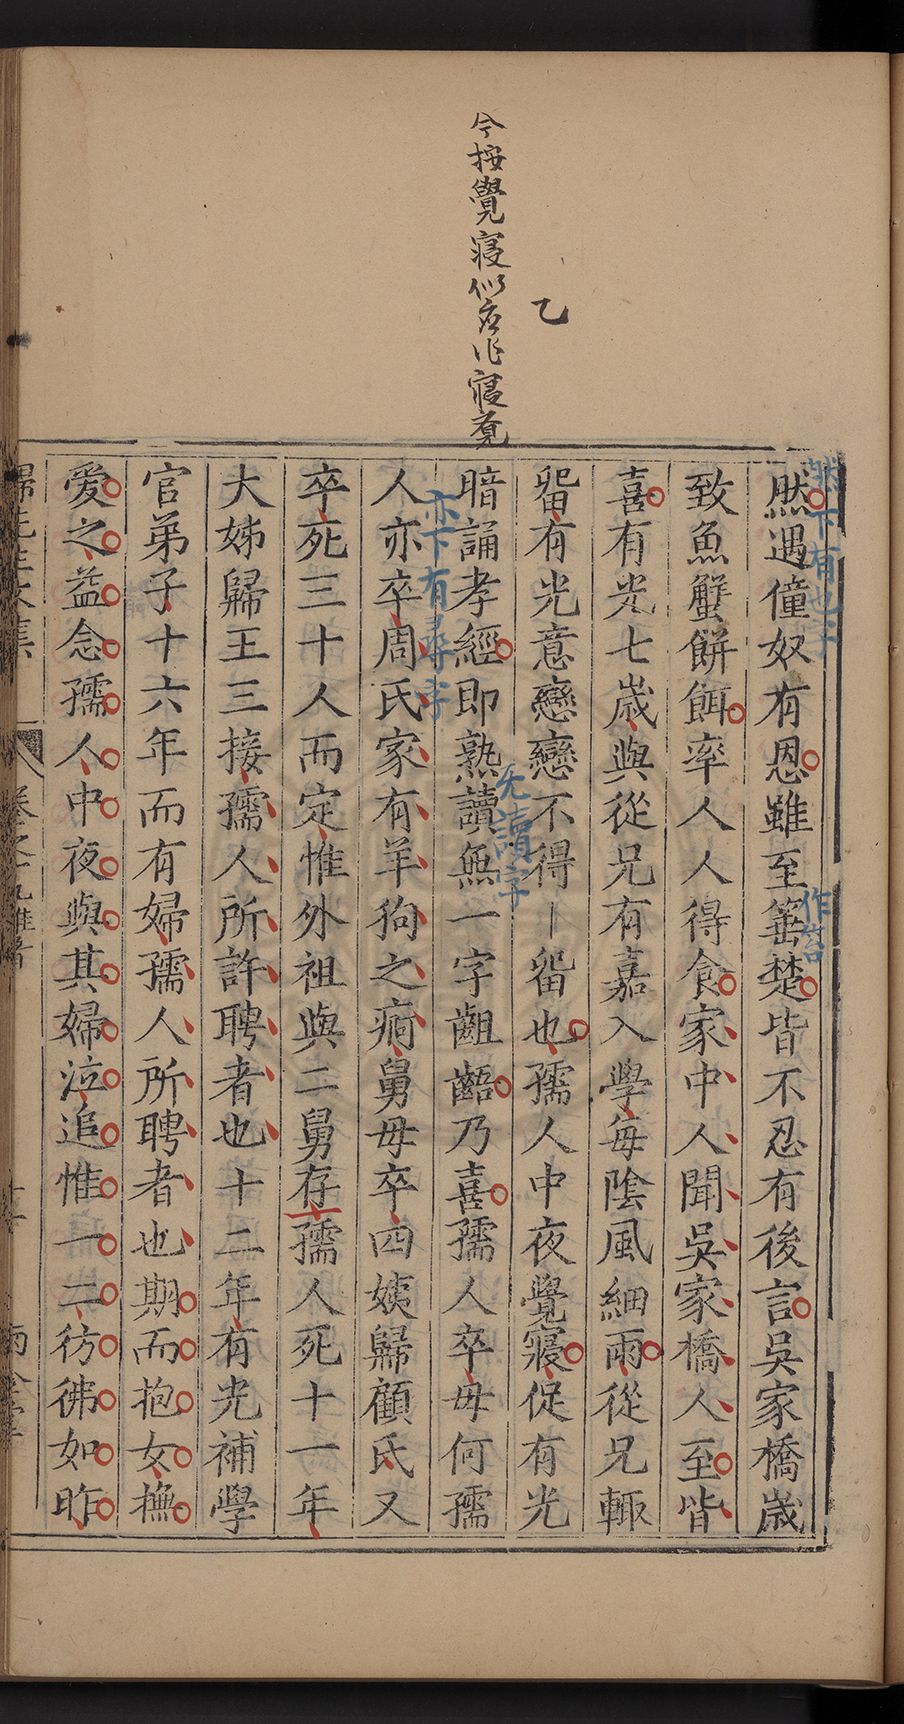 今按覺寢似应作寢覺
乙
然遇僮奴有恩雖至箠楚皆不忍有後言吳家橋歲
然下有也字
作笞
致魚蟹餅餌率人人得食家中人聞吳家橋人至皆
喜有光七歲與從兄有嘉入學每陰風細雨從兄輒
畱有光意戀戀不得丨畱也孺人中夜覺寢促有光
暗誦孝經即熟讀無一字齟齬乃喜孺人卒母何孺
无讀字
人亦卒周氏家有羊狗之痾舅母卒四姨歸顧氏又
亦下有尋字
卒死三十人而定惟外祖與二舅存孺人死十一年
大姊歸王三接孺人所許聘者也十二年有光補學
官弟子十六年而有婦孺人所聘者也期而抱女撫
愛之益念孺人中夜與其婦泣追惟一二彷彿如昨